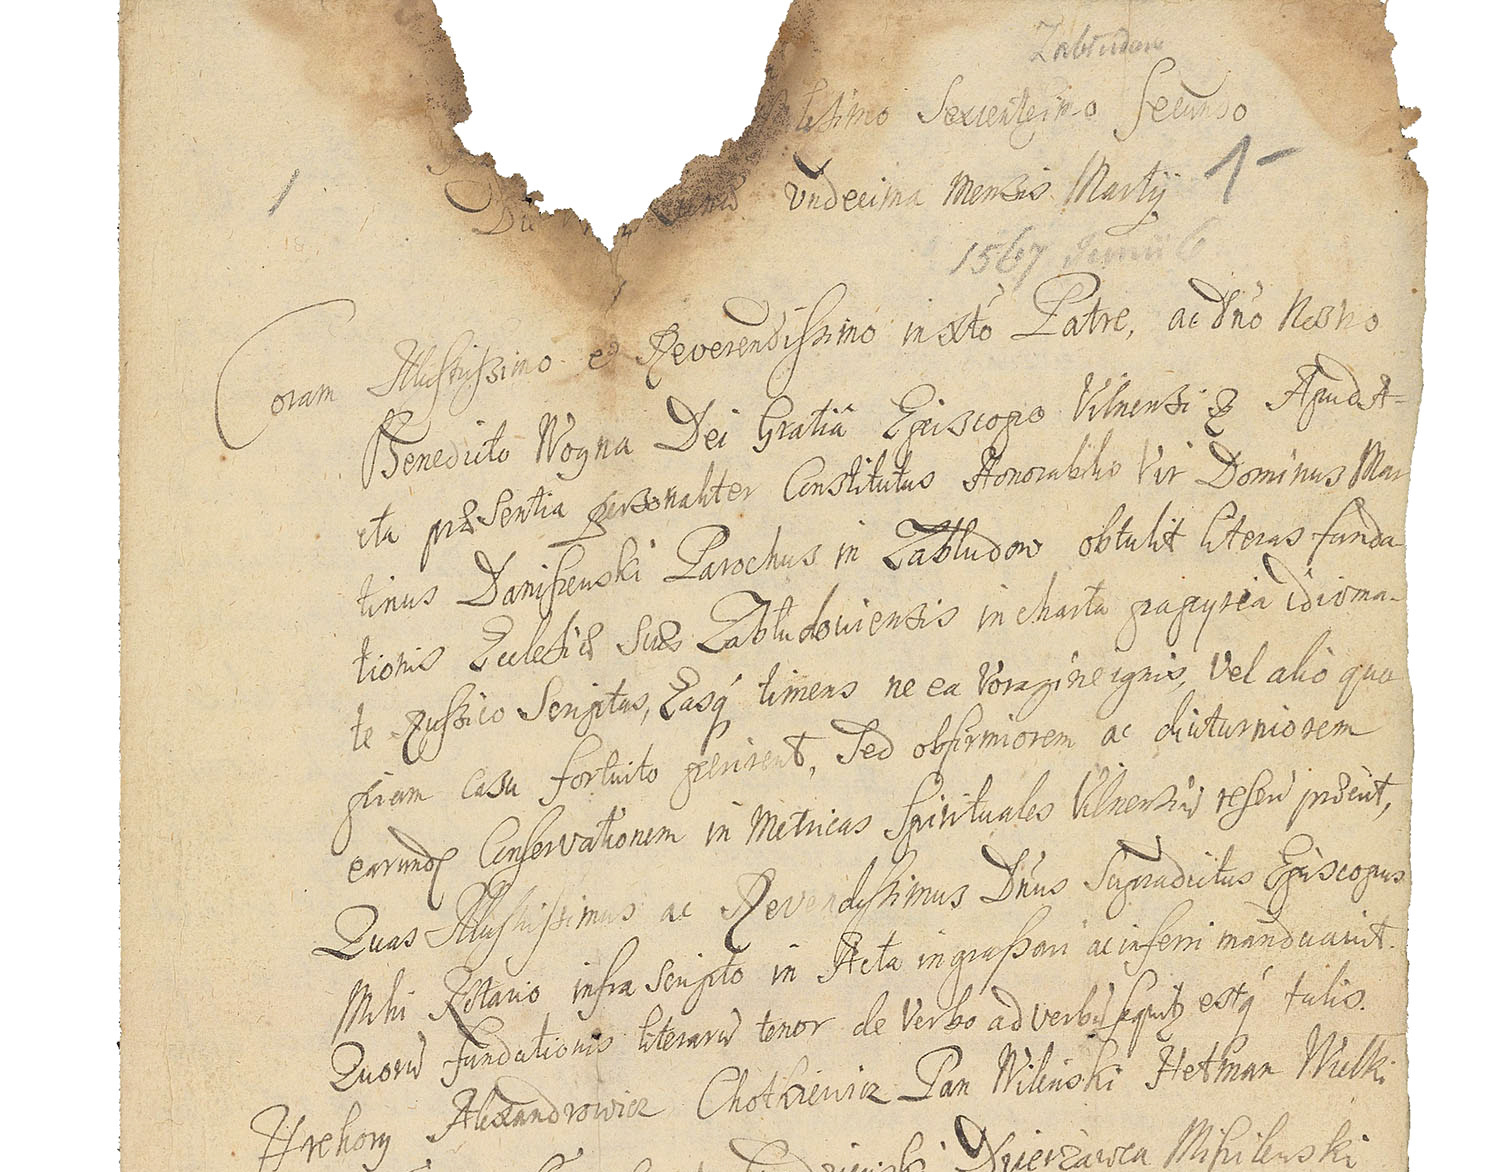 Zabłudow
lesimo Sexcentesimo Secundo
1 Die Lunae Undecima Mensis Martij 1
1567 Junii 6
Coram Illustrissimo et Reverendissimo in Xto Patre, ac Dno Nostro
Benedicto Wogna Dei Gratia Episcopo Vilnensi & Apud A=
cta præsentia personaliter Constitutus Honorabilis Vir Dominus Mar
tinus Daniszewski Parochus in Zabludow obtulit literas funda-
tionis Ecclesiæ Suæ Zabludoviensis in charta papyrea idioma-
te Russico Scriptas, Easq timens ne ea Voragine ignis, Vel alio quo
piam Casu fortuito perirent, Sed ob firmiorem ac diuturniorem
earundem Conservationem in Metricas Spirituales Vilnensis
Quas Illustrissimus ac Reverendissimus Dnus Supradictus Episcopus
Mihi Notario infra Scripto in Acta ingrossari ac inferri mandavit.
Quoru fundationis literaru tenor de Verbo ad verbu sequitr estq talis.
Hrehory Alexandrowicz Chotkiewicz Pan Wilenski Hetman Wielki
Dzierżawca Mihilenski